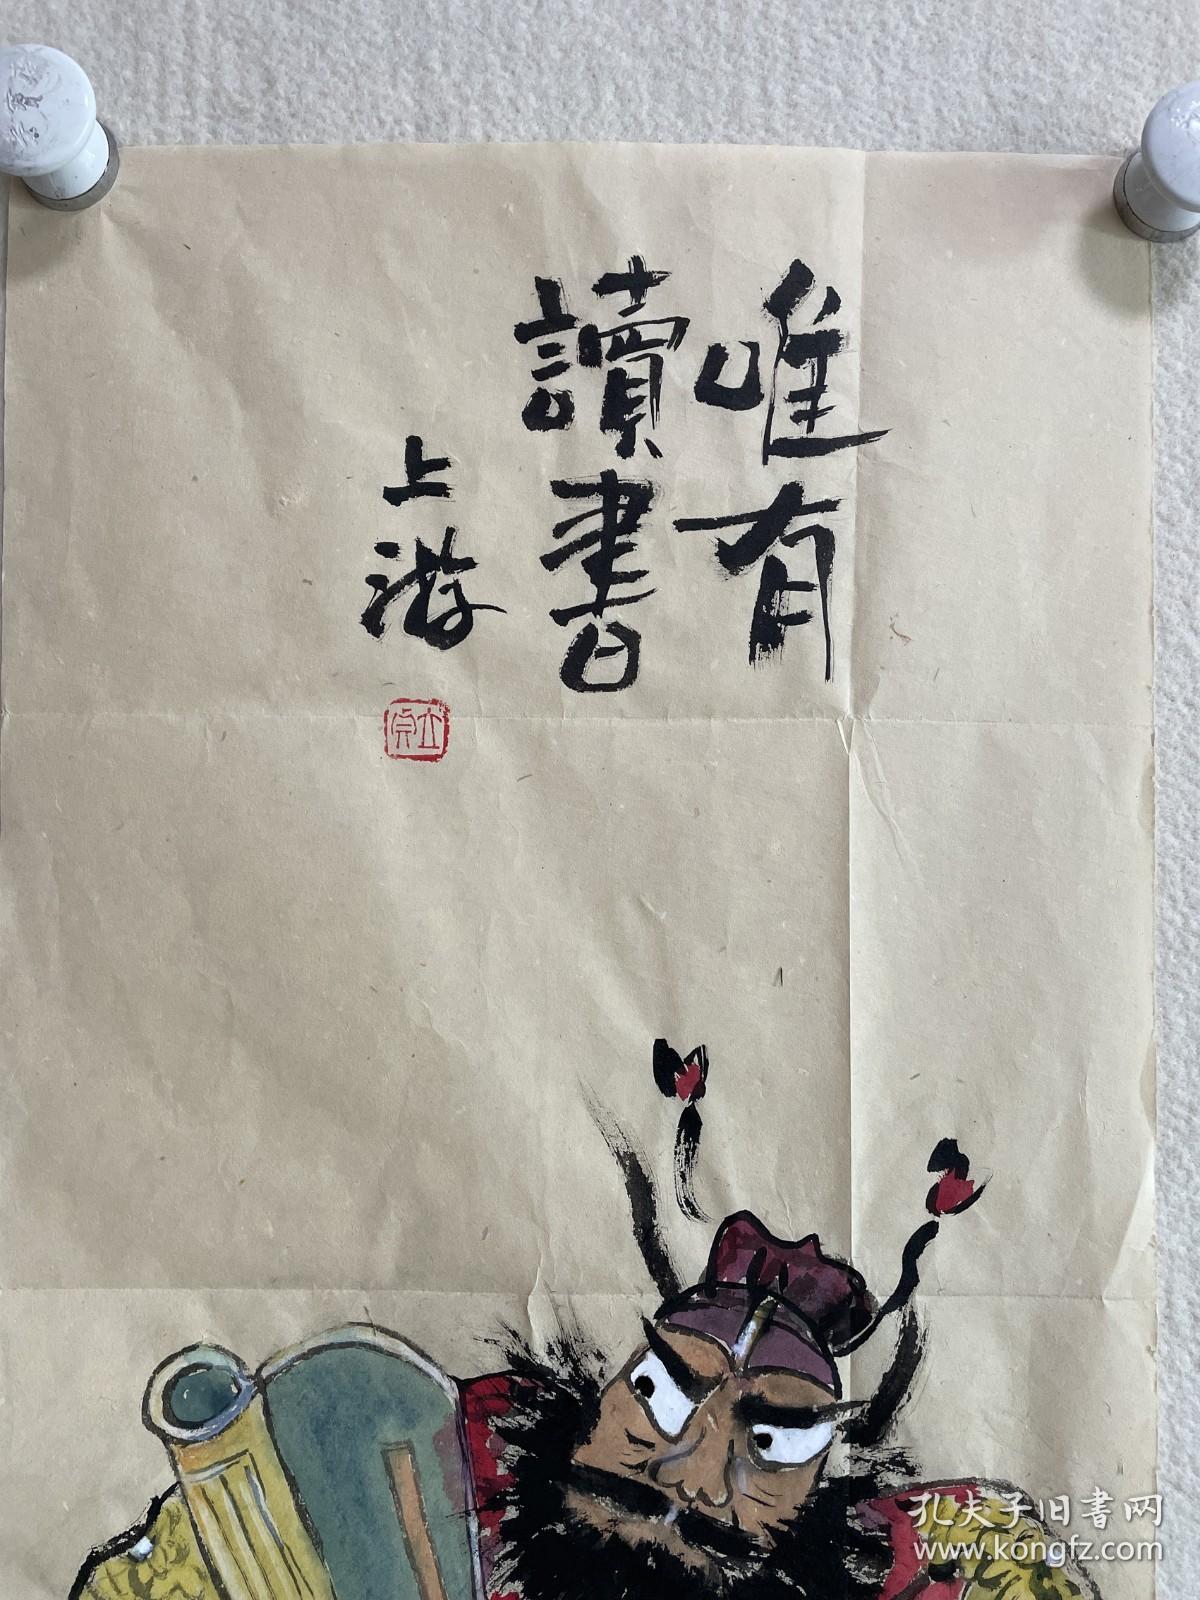 唯有
讀書
上游
孔夫子旧书网
www.kongfz.com